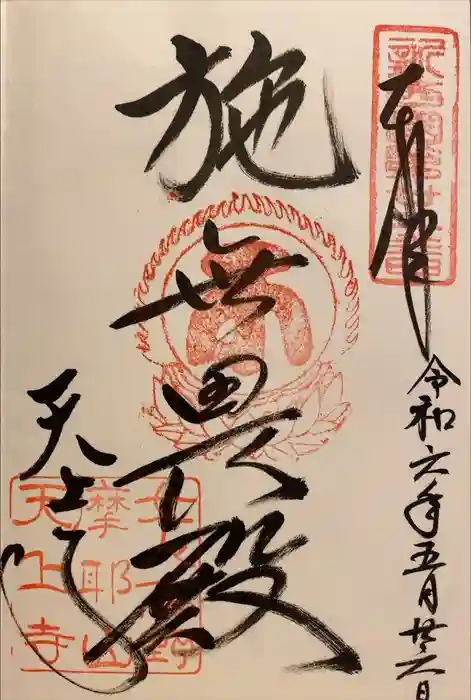 奉拝
令和六年五月廿六日
施無畏殿
天上寺
摩耶山
天上寺